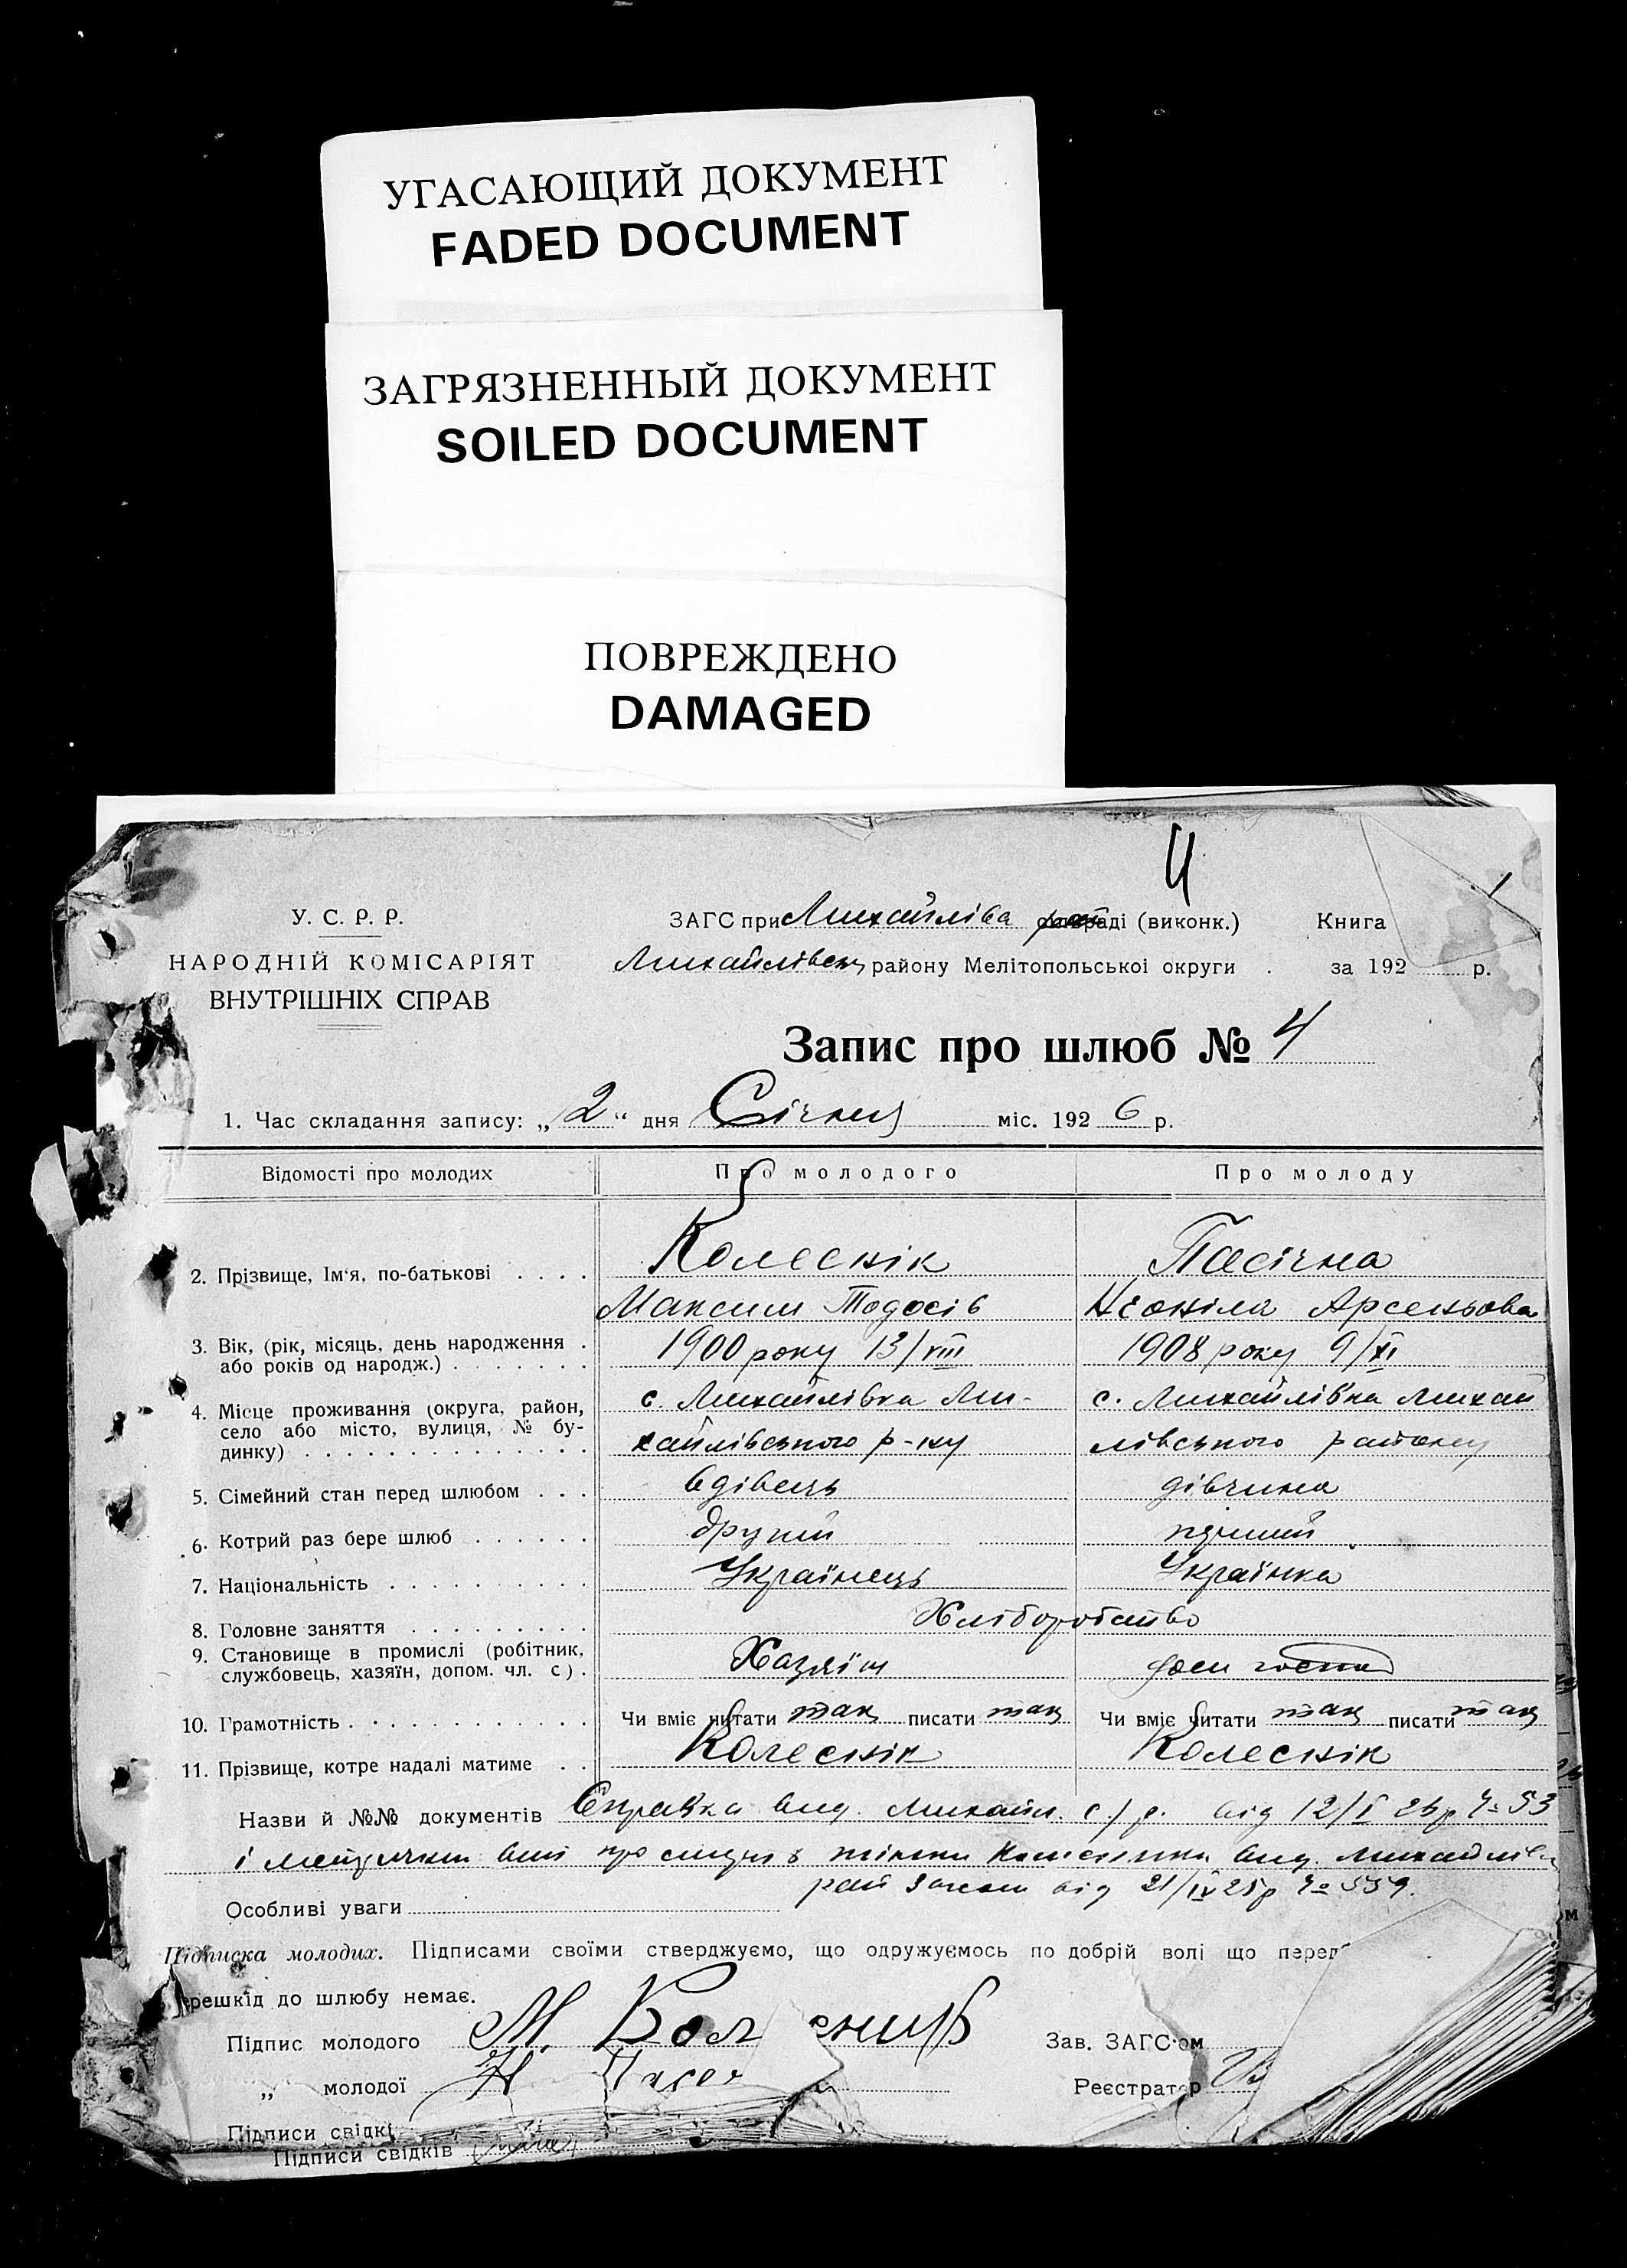 УГАСАЮЩИЙ ДОКУМЕНТ
FADED DOCUMENT
ЗАГРЯЗНЕННЫЙ ДОКУМЕНТ
SOILED DOCUMENT
ПОВРЕЖДЕНО
DAMAGED
4
У. С. Р. Р.
НАРОДНІЙ КОМІСАРІЯТ
ВНУТРІШНІХ СПРАВ
ЗАГС при Михайлівс раді (виконк.) Книга
Михайлівськ району Мелітопольської округи . за 192 р.
Запис про шлюб № 4
1. Час складання запису: „2“ дня Січня міс. 1926 р.
Відомості про молодих Про молодого Про молоду
2. Прізвище, Ім‘я, по-батькові . . . . Колеснік Пасічна
Максим Тодосів Неоніла Арсеньова
3. Вік, (рік, місяць, день народження . або років од народж.) . . . . . . . 1900 року 13/VIII 1908 року 9/XI
4. Місце проживання (округа, район, село або місто, вулиця, № будинку) . . . . . . . . . . . . . . с. Михайлівка Ми- с. Михайлівка Михай
хайлівського р-ну лівського району
5. Сімейний стан перед шлюбом . . . вдівець дівчина
6. Котрий раз бере шлюб . . . . . . другий перший
7. Національність . . . . . . . . . . Українець Українка
8. Головне заняття . . . . . . . . . Хліборобство
9. Становище в промислі (робітник, службовець, хазяїн, допом. чл. с) . Хазяїн
10. Грамотність . . . . . . . . . . . Чи вміє читати так писати так Чи вміє читати так писати так
11. Прізвище, котре надалі матиме . . Колеснік Колеснік
Назви й №№ документів Справка вид. Михайл. с/р. від 12/I 26р № 53
і про смерть жінки вид. Михайлів
рай Загсом від 21/IV 25р № 559.
Особливі уваги
Підписка молодих. Підписами своїми стверджуємо, що одружуємось по добрій волі що
решкід до шлюбу немає.
Підпис молодого М. Колесник Зав. ЗАГС‘ом
„ молодої Н Пасе Реєстратор
Підписи свідкі
Підписи свідків